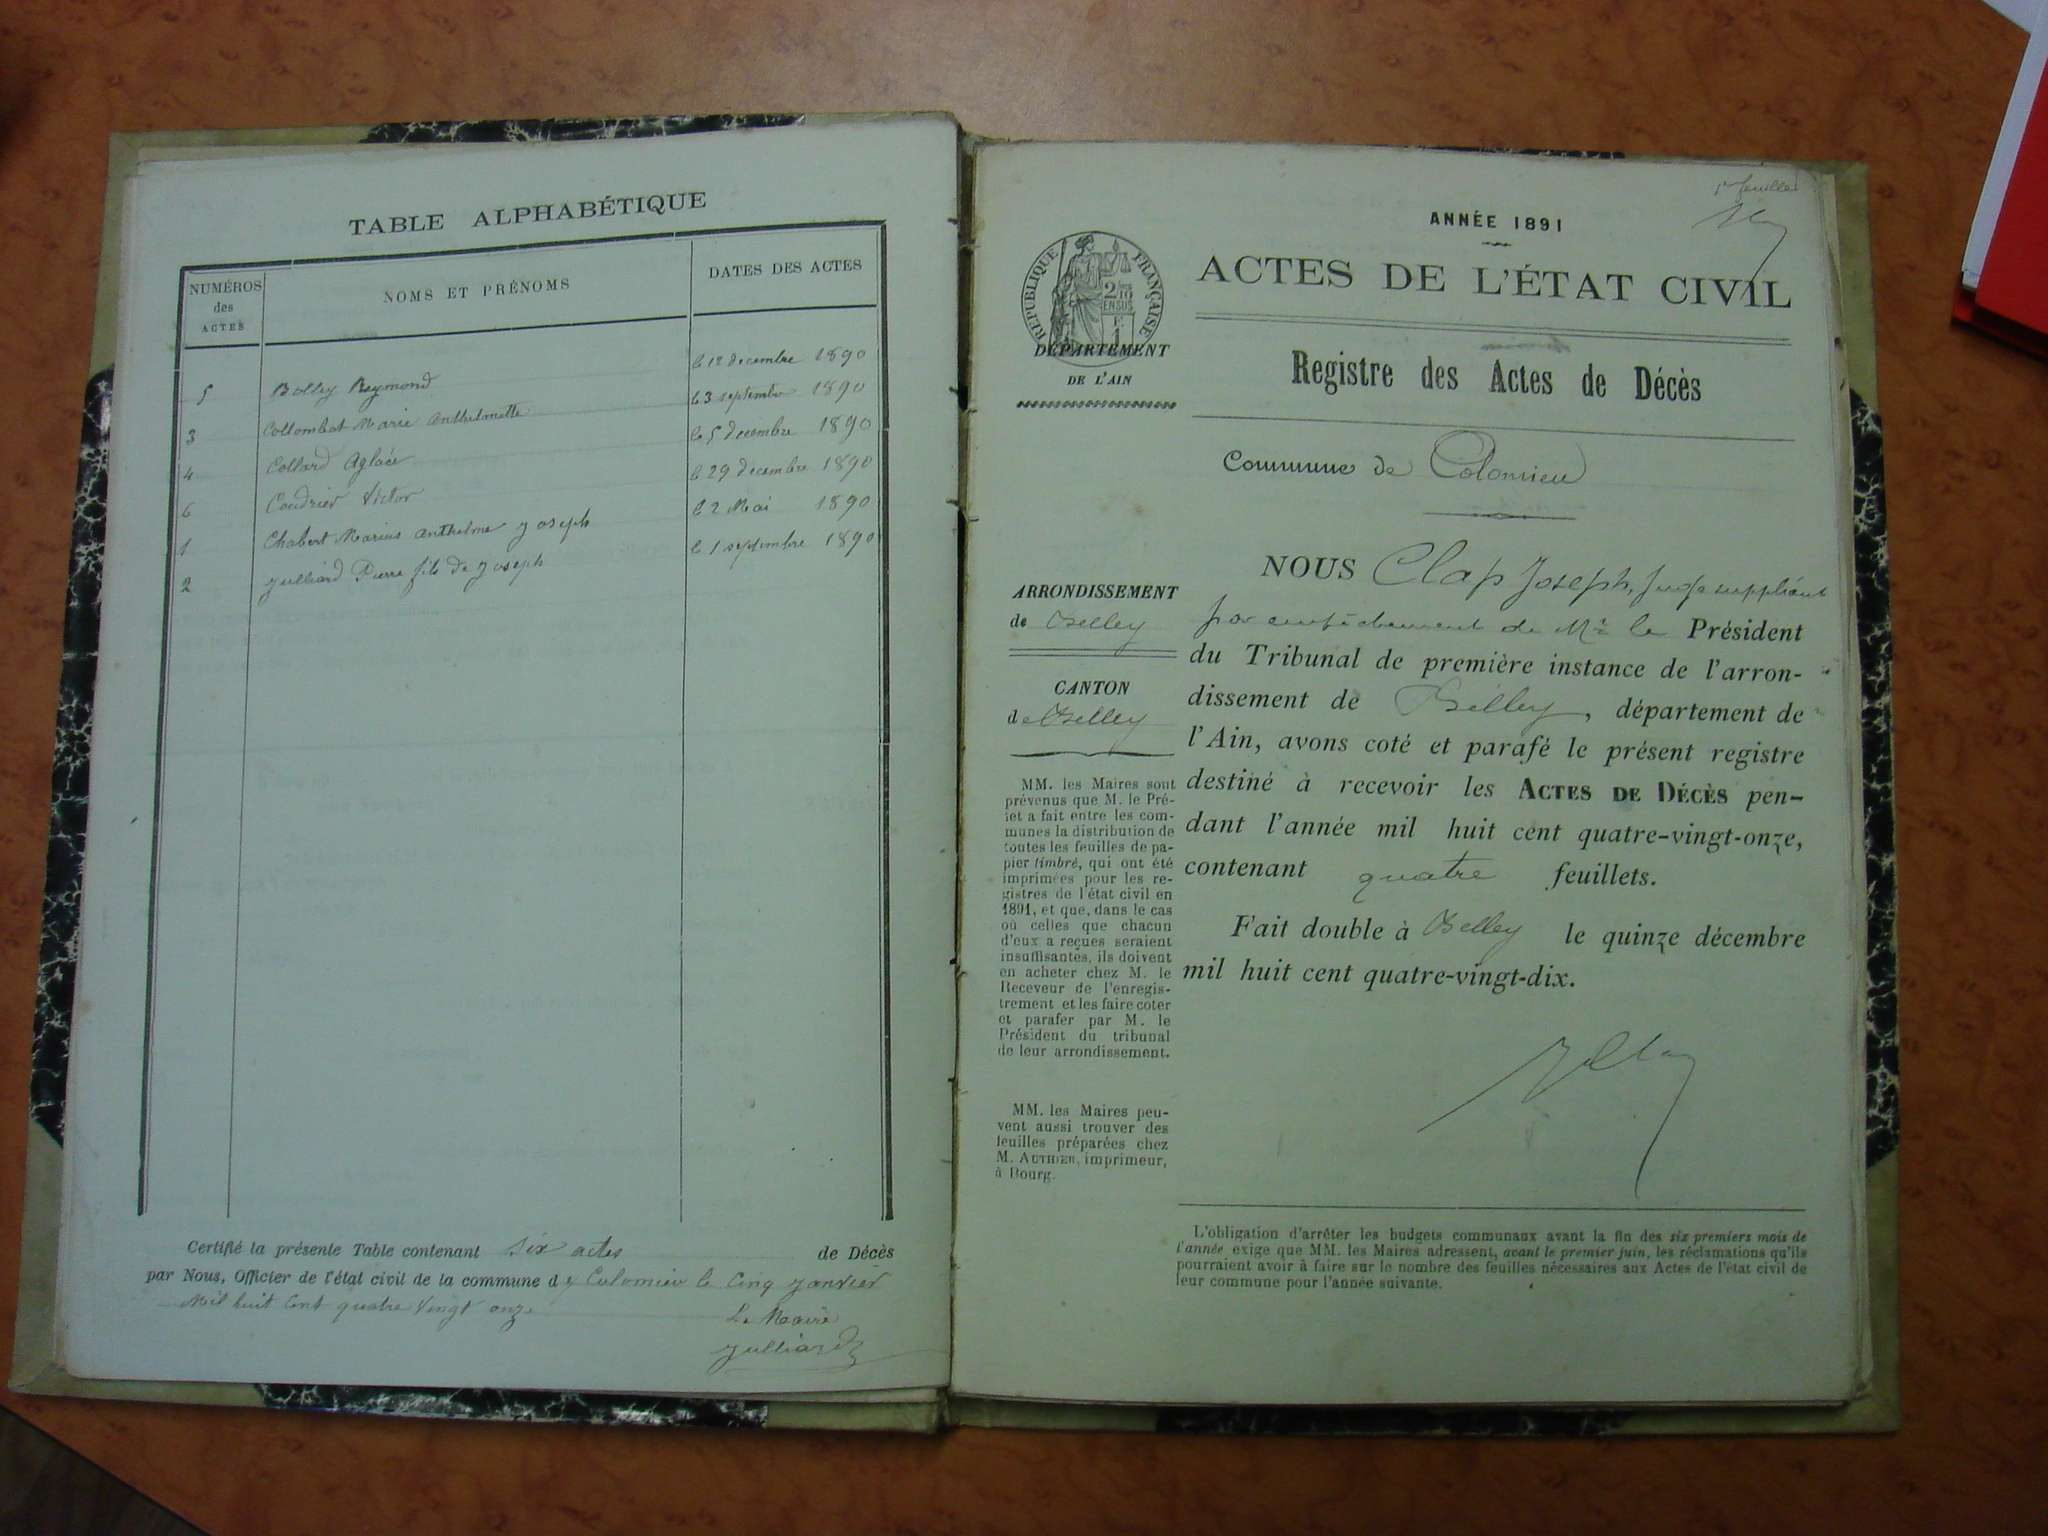 TABLE ALPHABÉTIQUE
NUMÉROS des ACTES NOMS ET PRÉNOMS DATES DES ACTES
5 Bolley Reymond le 12 decembre 1890
3 Collombat Marie Anthelmette le 3 septembre 1890
4 Collard Aglaée le 5 decembre 1890
6 Coudrier Victor le 29 decembre 1890
1 Chabert Marius Anthelme Joseph le 2 Mai 1890
2 Julliard Pierre fils de Joseph le 1 septembre 1890
Certifié la présente Table contenant six actes de Décès
par Nous, Officier de l'état civil de la commune de Colomieu le Cinq Janvier
Mil huit Cent quatre Vingt onze
Le Maire
Julliard
1er feuillet
ANNÉE 1891
ACTES DE L'ÉTAT CIVIL
RÉPUBLIQUE FRANÇAISE
2/10 EN SUS
DÉPARTEMENT
DE L'AIN
Registre des Actes de Décès
Commune de Colomieu
ARRONDISSEMENT
de Belley
CANTON
de Belley
MM. les Maires sont
prévenus que M. le Pré-
fet a fait entre les com-
munes la distribution de
toutes les feuilles de pa-
pier timbré, qui ont été
imprimées pour les re-
gistres de l'état civil en
1891, et que, dans le cas
où celles que chacun
d'eux a reçues seraient
insuffisantes, ils doivent
en acheter chez M. le
Receveur de l'enregis-
trement et les faire coter
et parafer par M. le
Président du tribunal
de leur arrondissement.
MM. les Maires peu-
vent aussi trouver des
feuilles préparées chez
M. AUTHIER, imprimeur,
à Bourg.
NOUS Clap Joseph, Juge suppléant
par empêchement de Mr le Président
du Tribunal de première instance de l'arron-
dissement de Belley, département de
l'Ain, avons coté et parafé le présent registre
destiné à recevoir les ACTES DE DÉCÈS pen-
dant l'année mil huit cent quatre-vingt-onze,
contenant quatre feuillets.
Fait double à Belley le quinze décembre
mil huit cent quatre-vingt-dix.
L'obligation d'arrêter les budgets communaux avant la fin des six premiers mois de
l'année exige que MM. les Maires adressent, avant le premier juin, les réclamations qu'ils
pourraient avoir à faire sur le nombre des feuilles nécessaires aux Actes de l'état civil de
leur commune pour l'année suivante.